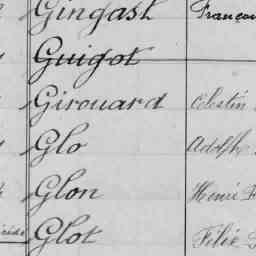 Gingast Françoi
Guigot
Girouard Célestin
Glo Adolphe
Glon Henri F
Glot Félix